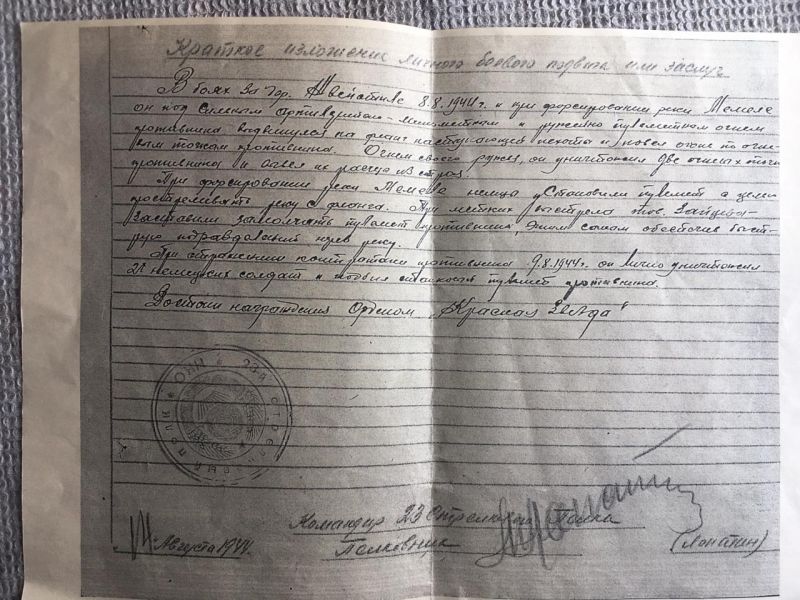 Краткое изложение личного боевого подвига или заслуг
В боях за гор. 8.8.1944 г. и при форсировании реки Мемеле
он под сильным артиллерийско-минометным и ружейно пулеметным огнем
противника выдвинулся на фланг наступающей пехоты и повел огонь по огне-
вым точкам противника. Огнем своего он уничтожил две огневых точки
противника и
При форсировании реки Мемеле немцы установили пулемет с целью
простреливать реку с фланга. При метких выстрела тов. Зайцева
заставили замолчать пулемет противника, этим самым обеспечив быст-
рую через реку.
При отражении контратаки противника 9.8.1944 г. он лично уничтожил
немецких солдат и станковый пулемет противника.
Достоин награждения Орденом „Красная Звезда"
НКО * 23й стрелковый полк *
Командир 23 Стрелкового Полка
Августа 1944. Полковник (Лопатин)